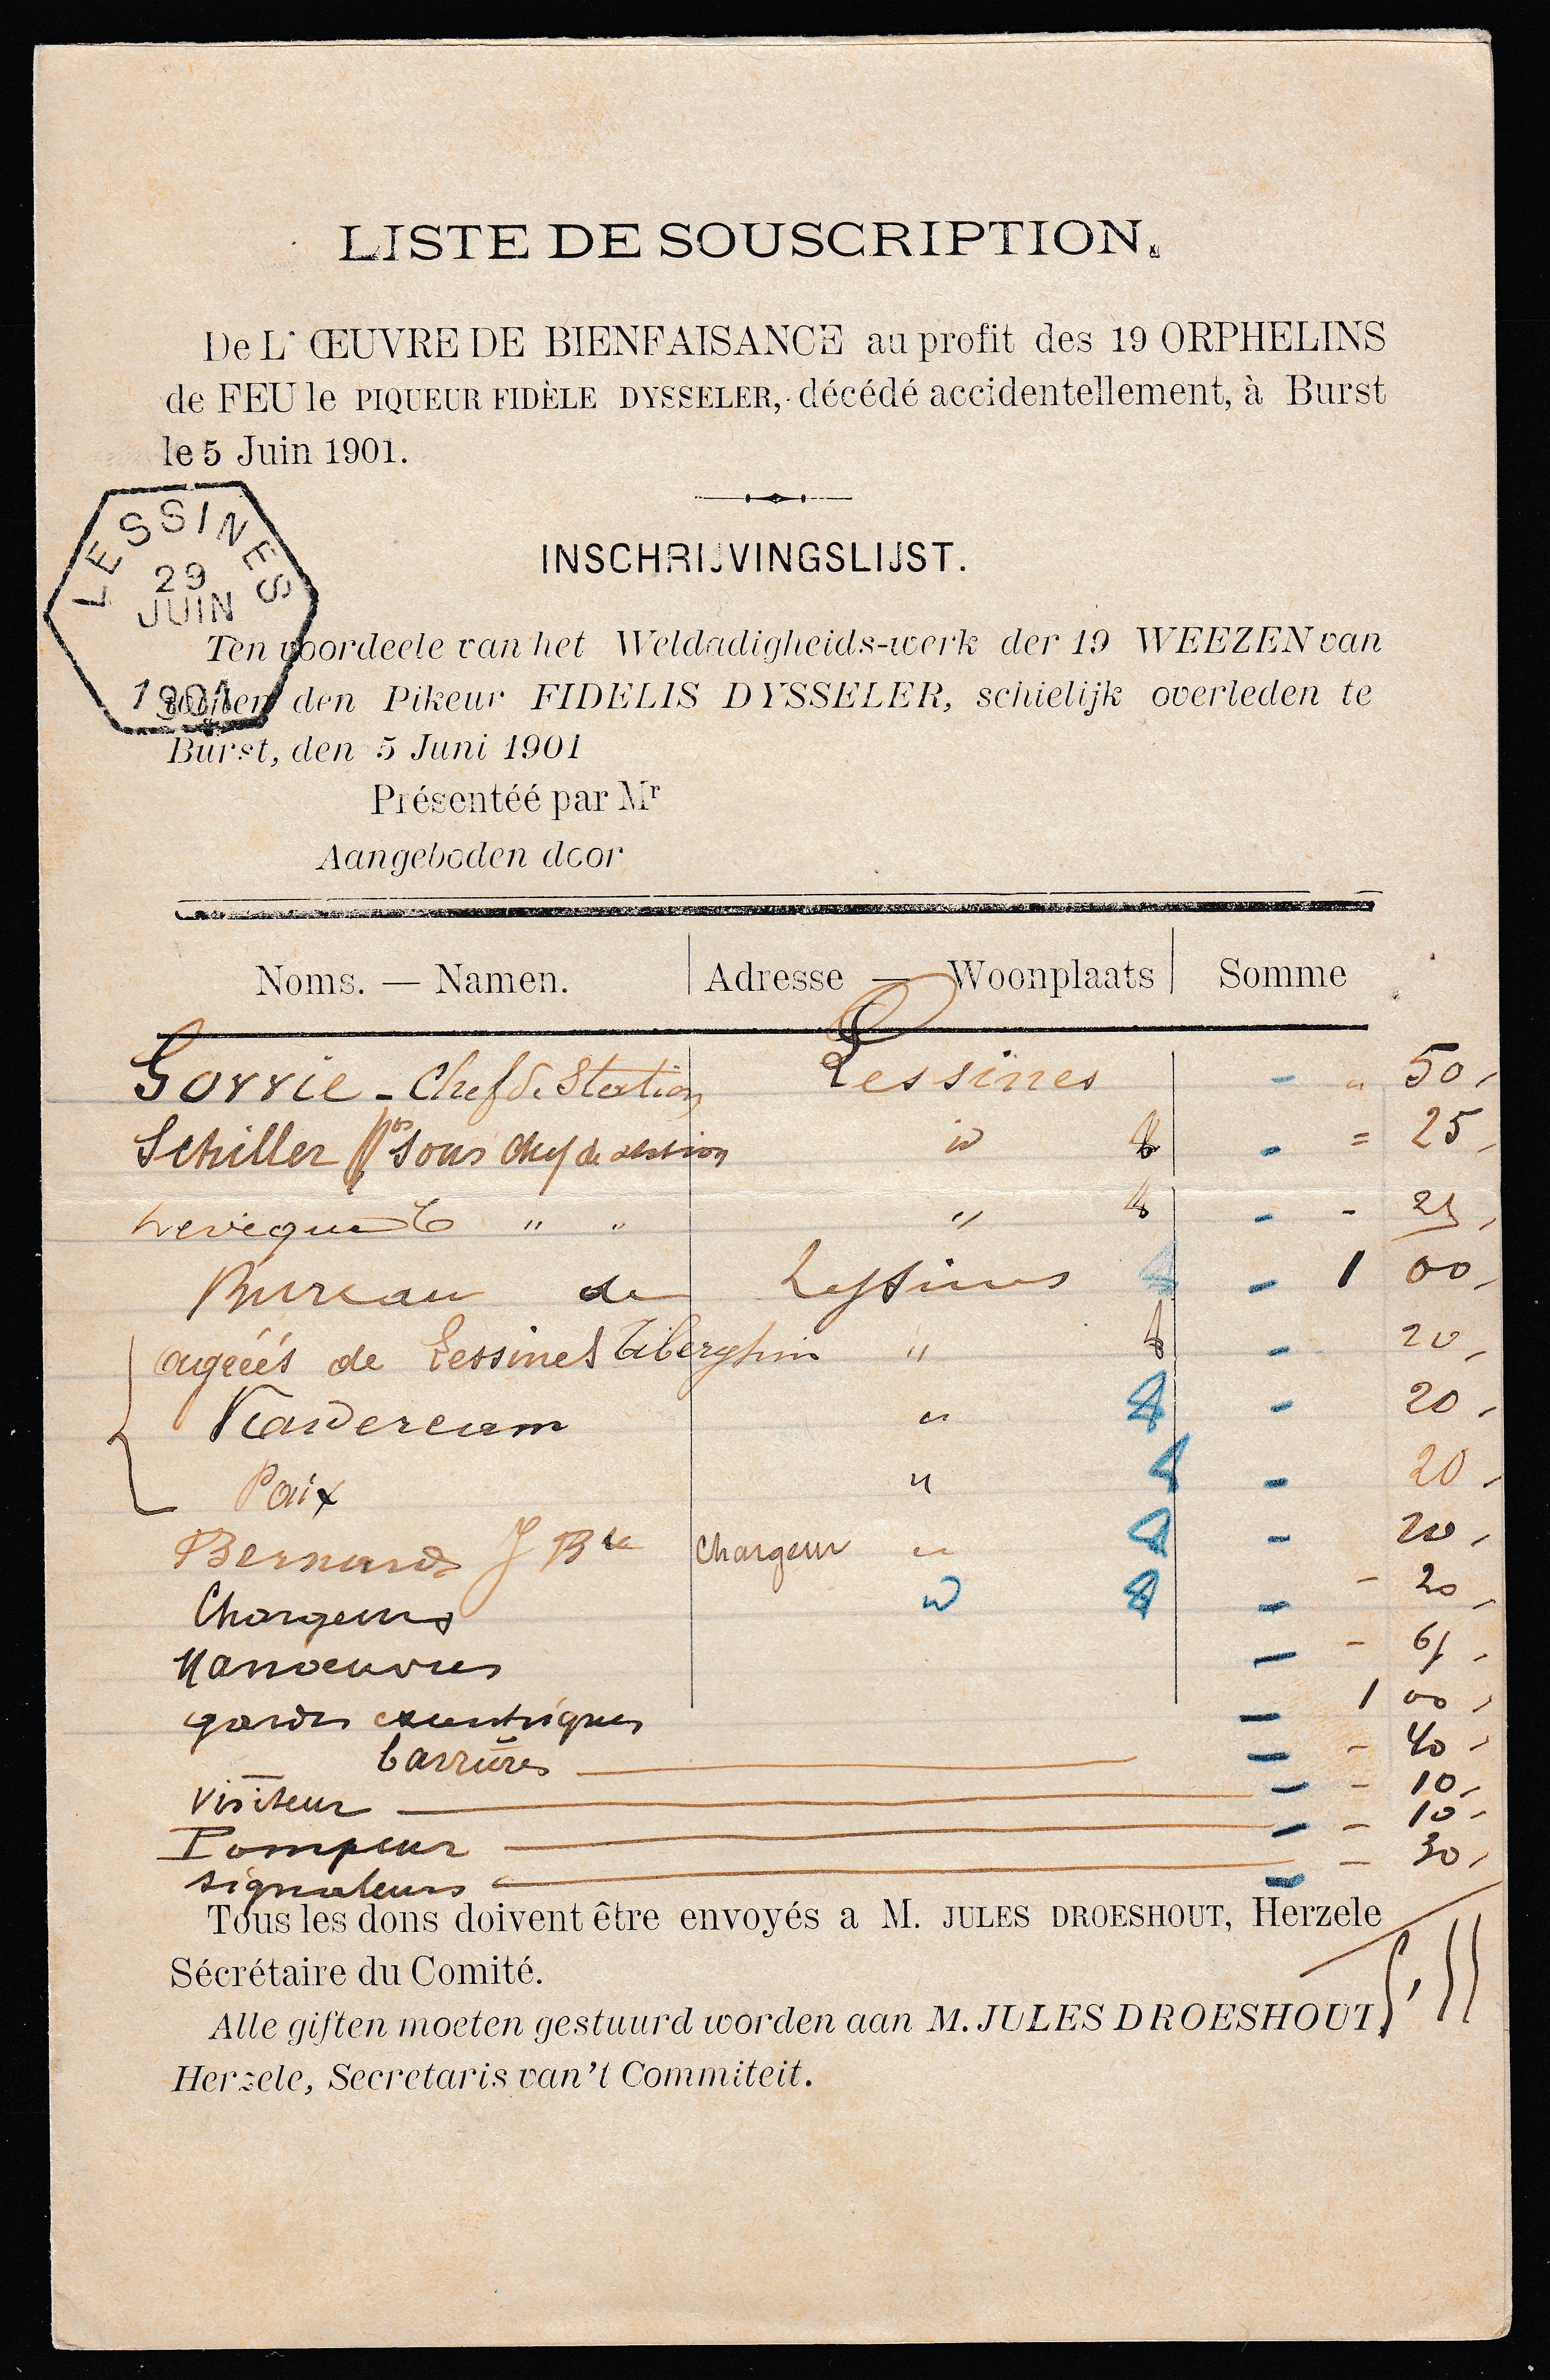 LISTE DE SOUSCRIPTION.
De L' ŒUVRE DE BIENFAISANCE au profit des 19 ORPHELINS
de FEU le PIQUEUR FIDÈLE DYSSELER, décédé accidentellement, à Burst
le 5 Juin 1901.
LESSINES
29
JUIN
1901
INSCHRIJVINGSLIJST.
Ten voordeele van het Weldadigheids-werk der 19 WEEZEN van
wijlen den Pikeur FIDELIS DYSSELER, schielijk overleden te
Burst, den 5 Juni 1901
Présentéé par Mr
Aangeboden door
Noms. — Namen. Adresse — Woonplaats Somme
Gorrie - Chef de Station Lessines - " 50,
Schiller sous chef de station id - = 25,
Leveque " " " - - 25,
Bureau de Lessines - 1 00,
agréés de Lessines Tiberghien " - 20,
" - 20,
Paix " - 20,
Bernard J Bte chargeur " - 20,
Chargeurs id - - 20,
Manoeuvres - -
gardes excentriques - 1 00,
barrières - - 40,
Visiteur - - 10,
Pompeur - - 10,
signaleurs - - 30,
Tous les dons doivent être envoyés a M. JULES DROESHOUT, Herzele
Sécrétaire du Comité.
Alle giften moeten gestuurd worden aan M. JULES DROESHOUT,
Herzele, Secretaris van't Commiteit.